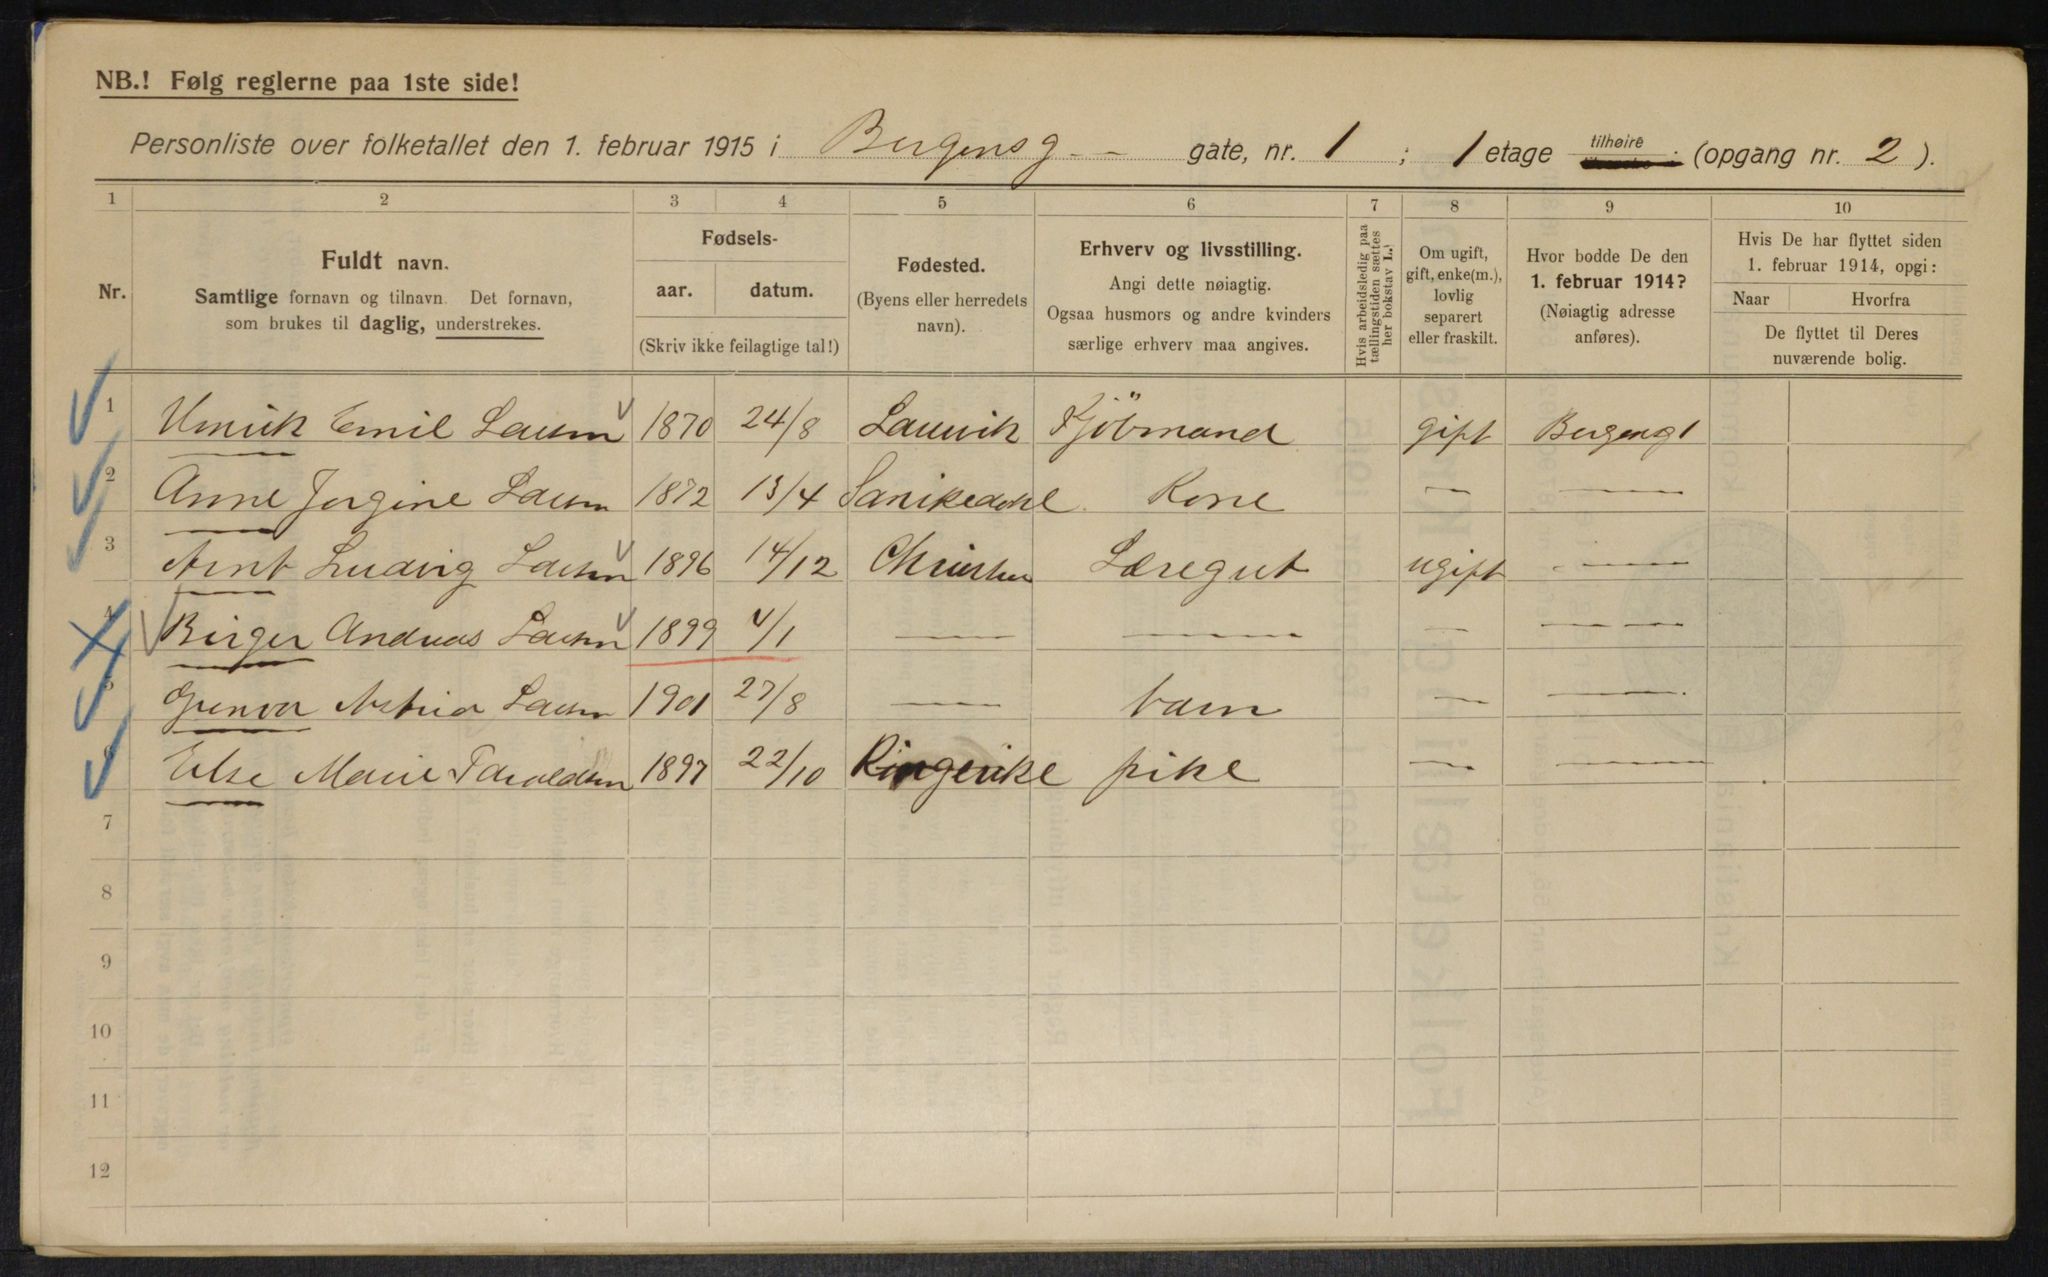 NB.! Følg reglerne paa 1ste side!
Personliste over folketallet den 1. februar 1915 i Bergensg gate, nr. 1 ; 1 etage tilhøire (opgang nr. 2 ).
1 2 3 4 5 6 7 8 9 10
Nr.
Fuldt navn.
Samtlige fornavn og tilnavn. Det fornavn,
som brukes til daglig, understrekes.
Fødsels-
aar. datum.
(Skriv ikke feilagtige tal!)
Fødested.
(Byens eller herredets
navn).
Erhverv og livsstilling.
Angi dette nøiagtig.
Ogsaa husmors og andre kvinders
særlige erhverv maa angives.
Hvis arbeidsledig paa
tællingstiden sættes
her bokstav L.
Om ugift,
gift, enke(m.),
lovlig
separert
eller fraskilt.
Hvor bodde De den
1. februar 1914?
(Nøiagtig adresse
anføres).
Hvis De har flyttet siden
1. februar 1914, opgi:
Naar Hvorfra
De flyttet til Deres
nuværende bolig.
1 Emil Larsen 1870 24/8 Laurvik Kjöbmand gift Bergensg 1
2 Anne Jorgine Larsen 1872 13/4 Kone — —
3 Arnt Ludvig Larsen 1896 14/12 Læregut ugift —
4 Birger Andreas Larsen 1899 4/1 — — — —
5 Astrid Larsen 1901 27/8 — barn — —
6 Else Marie Taraldsen 1897 22/10 Ringerike pike — —
7
8
9
10
11
12